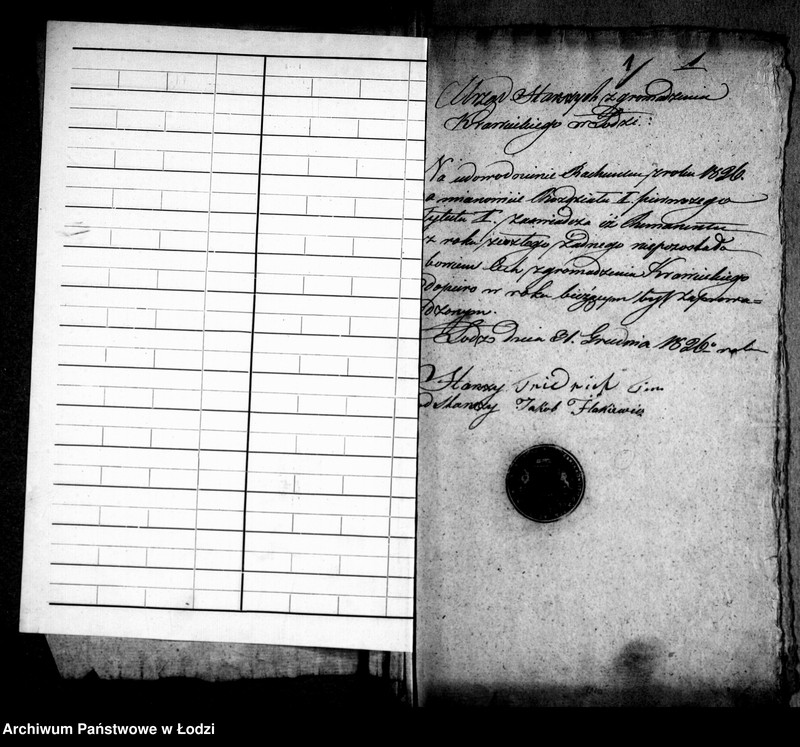 1 1
Urząd Starszych zgromadzenia
Krawieckiego w Łodzi.
Na udowodnienie Rachunku z roku 1826.
a mianowicie Rozdziału I. pierwszego
Tytułu I. zaświadcza iż Remanentu
z roku zeszłego żadnego niepozostało
bowiem Cech zgromadzenia Krawieckiego
dopiero w roku bieżącym był zaprowa=
dzonym.
Łodź dnia 31. Grudnia 1826o roku
Starszy Friedrich
Podstarszy Jakob
Archiwum Państwowe w Łodzi